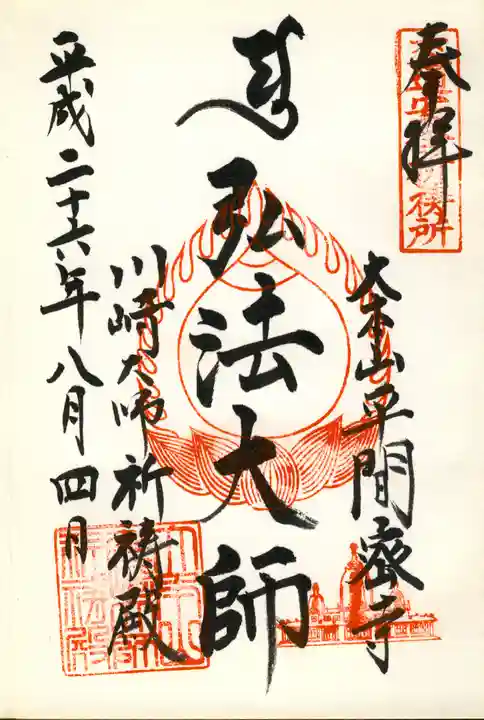 奉拝
大本山平間寺
弘法大師
川崎大師祈祷殿
平成二十六年八月四日